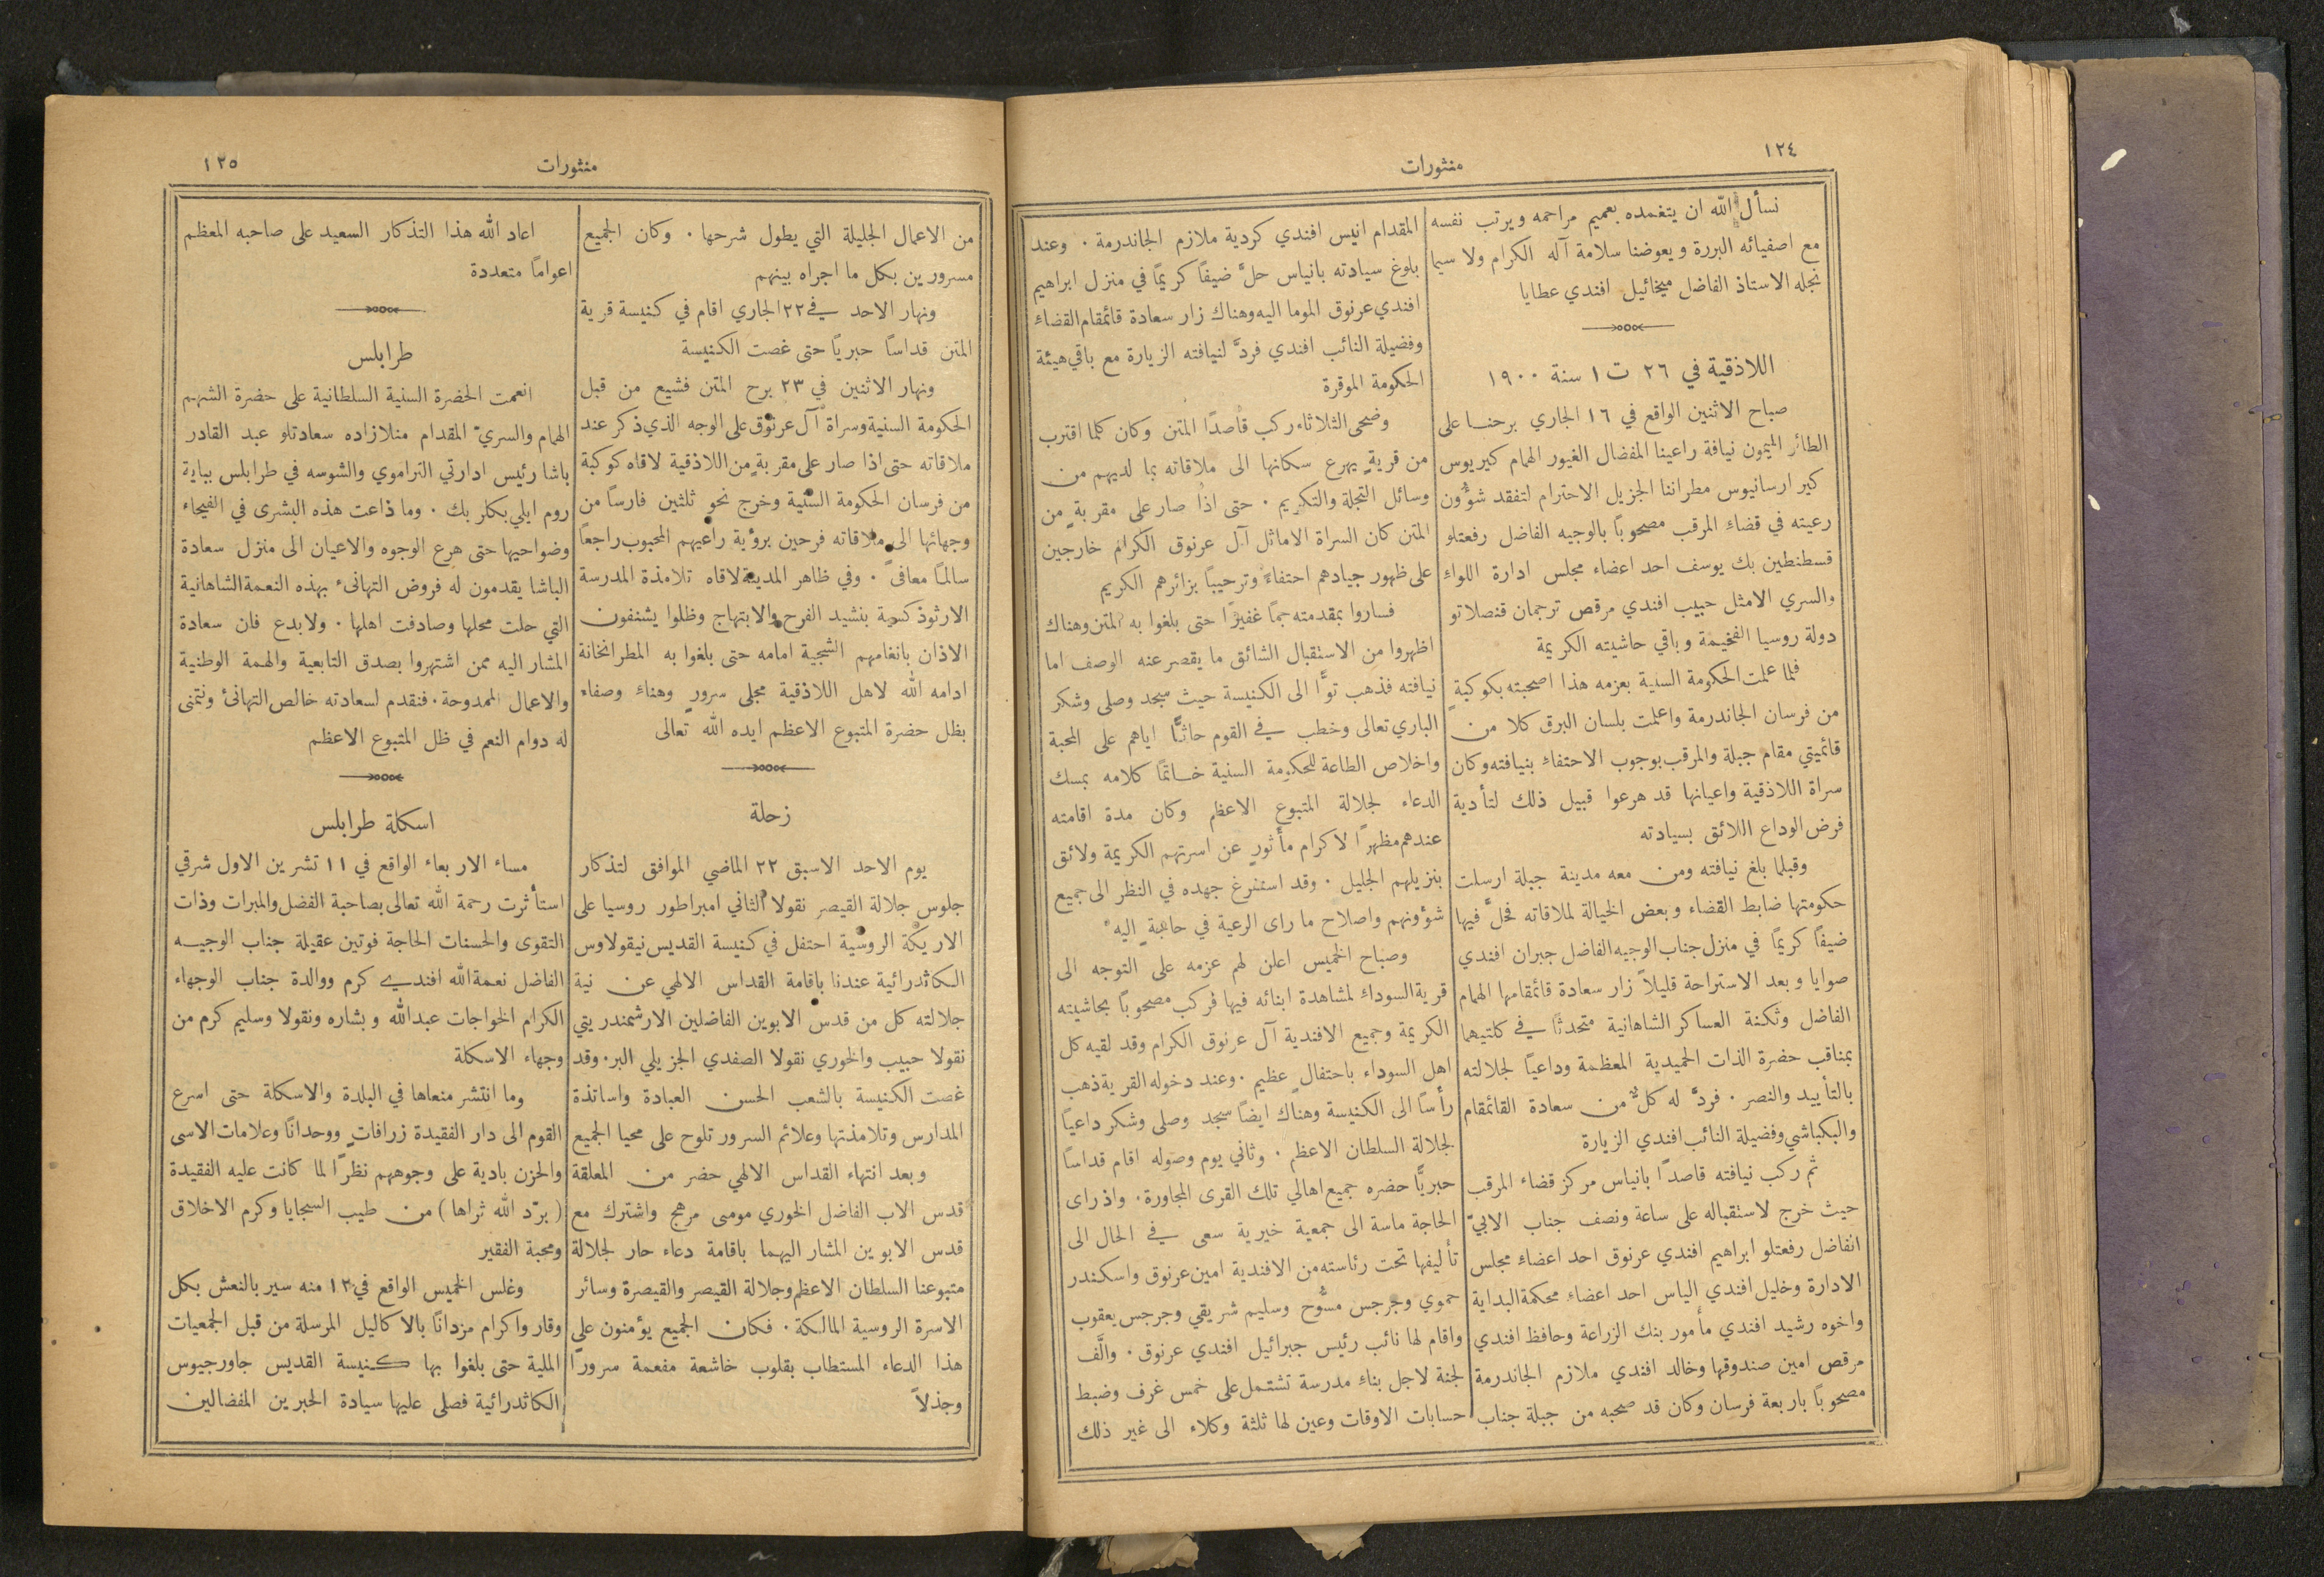 ١٢٤
منثورات
نسأل الله ان يتغمده بعميم مراحمه ويرتب نفسه
مع اصفيائه البررة ويعوضنا سلامة آله الكرام ولا سيما
نجله الاستاذ الفاضل ميخائيل افندي عطايا
اللاذقية في ٢٦ ت ١ سنة ١٩٠٠
صباح الاثنين الواقع في ١٦ الجاري برحنا على
الطائر الميمون نيافة راعينا المفضال الغيور الهمام كيريوس
كير ارسانيوس مطراننا الجزيل الاحترام لتفقد شؤون
رعيته في قضاء المرقب مصحوبًا بالوجيه الفاضل رفعتلو
قسطنطين بك يوسف احد اعضاء مجلس ادارة اللواء
والسري الامثل حبيب افندي مرقص ترجمان قنصلاتو
دولة روسيا الفخيمة وباقي حاشيته الكريمة
فلما علمت الحكومة السنية بعزمه هذا اصحبته بكوكبةٍ
من فرسان الجاندرمة واعلمت بلسان البرق كلا من
قائميتي مقام جبلة والمرقب بوجوب الاحتفاء بنيافته وكان
سراة اللاذقية واعيانها قد هرعوا قبيل ذلك لتأدية
فرض الوداع اللائق بسيادته
وقبلما بلغ نيافته ومن معه مدينة جبلة ارسلت
حكومتها ضابط القضاء وبعض الخيالة لملاقاته فحلَّ فيها
ضيفًا كريمًا في منزل جناب الوجيه الفاضل جبران افندي
صوايا وبعد الاستراحة قليلاً زار سعادة قائمقامها الهمام
الفاضل وثكنة العساكر الشاهانية متحدثًا في كلتيهما
بمناقب حضرة الذات الحميدية المعظمة وداعيًا لجلالته
بالتأييد والنصر . فردَّ له كلٌّ من سعادة القائمقام
والبكباشي وفضيلة النائب افندي الزيارة
ثم ركب نيافته قاصدًا بانياس مركز قضاء المرقب
حيث خرج لاستقباله على ساعة ونصف جناب الابيّ
الفاضل رفعتلو ابراهيم افندي عرنوق احد اعضاء مجلس
الادارة وخليل افندي الياس احد اعضاء محكمة البداية
واخوه رشيد افندي مأمور بنك الزراعة وحافظ افندي
مرقص امين صندوقها وخالد افندي ملازم الجاندرمة
مصحوبًا باربعة فرسان وكان قد صحبه من جبلة جناب
المقدام انيس افندي كردية ملازم الجاندرمة . وعند
بلوغ سيادته بانياس حلَّ ضيفًا كريمًا في منزل ابراهيم
افندي عرنوق الموما اليه وهناك زار سعادة قائمقام القضاء
وفضيلة النائب افندي فردَّ لنيافته الزيارة مع باقي هيئة
الحكومة الموقرة
وضحى الثلاثاء ركب قاصدًا المتن وكان كلما اقترب
من قرية يهرع سكانها الى ملاقاته بما لديهم من
وسائل التجلة والتكريم . حتى اذا صار على مقربةٍ من
المتن كان السراة الاماثل آل عرنوق الكرام خارجين
على ظهور جيادهم احتفاءً وترحيبًا بزائرهم الكريم
فساروا بمقدمته جمًا غفيرًا حتى بلغوا به المتن وهناك
اظهروا من الاستقبال الشائق ما يقصر عنه الوصف اما
نيافته فذهب توًّا الى الكنيسة حيث سجد وصلى وشكر
الباري تعالى وخطب في القوم حاثًّا اياهم على المحبة
واخلاص الطاعة للحكومة السنية خاتمًا كلامه بمسك
الدعاء لجلالة المتبوع الاعظم وكان مدة اقامته
عندهم مظهرًا لاكرام مأثور عن اسرتهم الكريمة ولائق
بنزيلهم الجليل . وقد استفرغ جهده في النظر الى جميع
شؤونهم واصلاح ما راى الرعية في حاجةٍ اليه
وصباح الخميس اعلن لهم عزمه على التوجه الى
قرية السوداء لمشاهدة ابنائه فيها فركب مصحوبًا بحاشيته
الكريمة وجميع الافندية آل عرنوق الكرام وقد لقيه كل
اهل السوداء باحتفالٍ عظيم . وعند دخوله القرية ذهب
رأسًا الى الكنيسة وهناك ايضًا سجد وصلى وشكر داعيًا
لجلالة السلطان الاعظم . وثاني يوم وصوله اقام قداسًا
حبريًّا حضره جميع اهالي تلك القرى المجاورة . واذ راى
الحاجة ماسة الى جمعية خيرية سعى في الحال الى
تأليفها تحت رئاسته من الافندية امين عرنوق واسكندر
حموي وجرجس مسُّوح وسليم شريقي وجرجس يعقوب
واقام لها نائب رئيس جبرائيل افندي عرنوق . والَّف
لجنة لاجل بناء مدرسة تشتمل على خمس غرف وضبط
حسابات الاوقات وعين لها ثلثة وكلاء الى غير ذلك
منثورات
١٢٥
من الاعمال الجليلة التي يطول شرحها . وكان الجميع
مسرورين بكل ما اجراه بينهم
ونهار الاحد في ٢٢ الجاري اقام في كنيسة قرية
المتن قداسًا حبريًا حتى غصت الكنيسة
ونهار الاثنين في ٢٣ برح المتن فشيع من قبل
الحكومة السنية وسراة آل عرنوق على الوجه الذي ذكر عند
ملاقاته حتى اذا صار على مقربةٍ من اللاذقية لاقاه كوكبة
من فرسان الحكومة السنية وخرج نحو ثلثين فارسًا من
وجهائها الى ملاقاته فرحين برؤية راعيهم المحبوب راجعًا
سالمًا معافىً . وفي ظاهر المدينة لاقاه تلامذة المدرسة
الارثوذكسية بنشيد الفرح والابتهاج وظلوا يشنفون
الاذان بانغامهم الشجية امامه حتى بلغوا به المطرانخانة
ادامه الله لاهل اللاذقية مجلى سرورٍ وهناء وصفاء
بظل حضرة المتبوع الاعظم ايده الله تعالى
زحلة
يوم الاحد الاسبق ٢٢ الماضي الموافق لتذكار
جلوس جلالة القيصر نقولا الثاني امبراطور روسيا على
الاريكة الروسية احتفل في كنيسة القديس نيقولاوس
الكاثدرائية عندنا باقامة القداس الالهي عن نية
جلالته كل من قدس الابوين الفاضلين الارشمندريتي
نقولا حبيب والخوري نقولا الصفدي الجزيلي البر . وقد
غصت الكنيسة بالشعب الحسن العبادة واساتذة
المدارس وتلامذتها وعلائم السرور تلوح على محيا الجميع
وبعد انتهاء القداس الالهي حضر من المعلقة
قدس الاب الفاضل الخوري موسى مرهج واشترك مع
قدس الابوين المشار اليهما باقامة دعاء حار لجلالة
متبوعنا السلطان الاعظم وجلالة القيصر والقيصرة وسائر
الاسرة الروسية المالكة . فكان الجميع يؤمنون على
هذا الدعاء المستطاب بقلوب خاشعة مفعمة سرورًا
وجذلاً
اعاد الله هذا التذكار السعيد على صاحبه المعظم
اعوامًا متعددة
طرابلس
انعمت الحضرة السنية السلطانية على حضرة الشهم
الهمام والسريّ المقدام منلازاده سعادتلو عبد القادر
باشا رئيس ادارتي التراموي والشوسه في طرابلس بباية
روم ايلي بكلر بك . وما ذاعت هذه البشرى في الفيحاء
وضواحيها حتى هرع الوجوه والاعيان الى منزل سعادة
الباشا يقدمون له فروض التهانىء بهذه النعمة الشاهانية
التي حلت محلها وصادفت اهلها . ولا بدع فان سعادة
المشار اليه ممن اشتهروا بصدق التابعية والهمة الوطنية
والاعمال الممدوحة . فنقدم لسعادته خالص التهانئ ونتمنى
له دوام النعم في ظل المتبوع الاعظم
اسكلة طرابلس
مساء الاربعاء الواقع في ١١ تشرين الاول شرقي
استأثرت رحمة الله تعالى بصاحبة الفضل والمبرات وذات
التقوى والحسنات الحاجة فوتين عقيلة جناب الوجيه
الفاضل نعمة الله افندي كرم ووالدة جناب الوجهاء
الكرام الخواجات عبدالله وبشاره ونقولا وسليم كرم من
وجهاء الاسكلة
وما انتشر منعاها في البلدة والاسكلة حتى اسرع
القوم الى دار الفقيدة زرافاتٍ ووحدانًا وعلامات الاسى
والحزن بادية على وجوههم نظرًا لما كانت عليه الفقيدة
( برّد الله ثراها ) من طيب السجايا وكرم الاخلاق
ومحبة الفقير
وغلس الخميس الواقع في ١٢ منه سير بالنعش بكل
وقار واكرام مزدانًا بالاكاليل المرسلة من قبل الجمعيات
الملية حتى بلغوا بها كنيسة القديس جاورجيوس
الكاثدرائية فصلى عليها سيادة الحبرين المفضالين